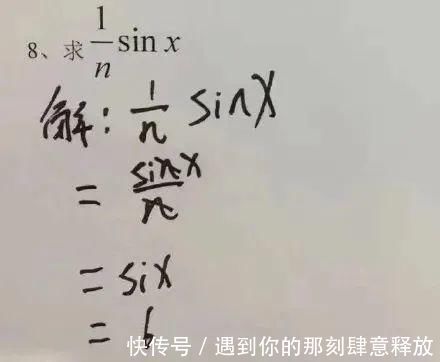 8、求 1/n sin x
解: 1/n sinX
= sinx/n
= six
= 6
快传号/遇到你的那刻肆意释放